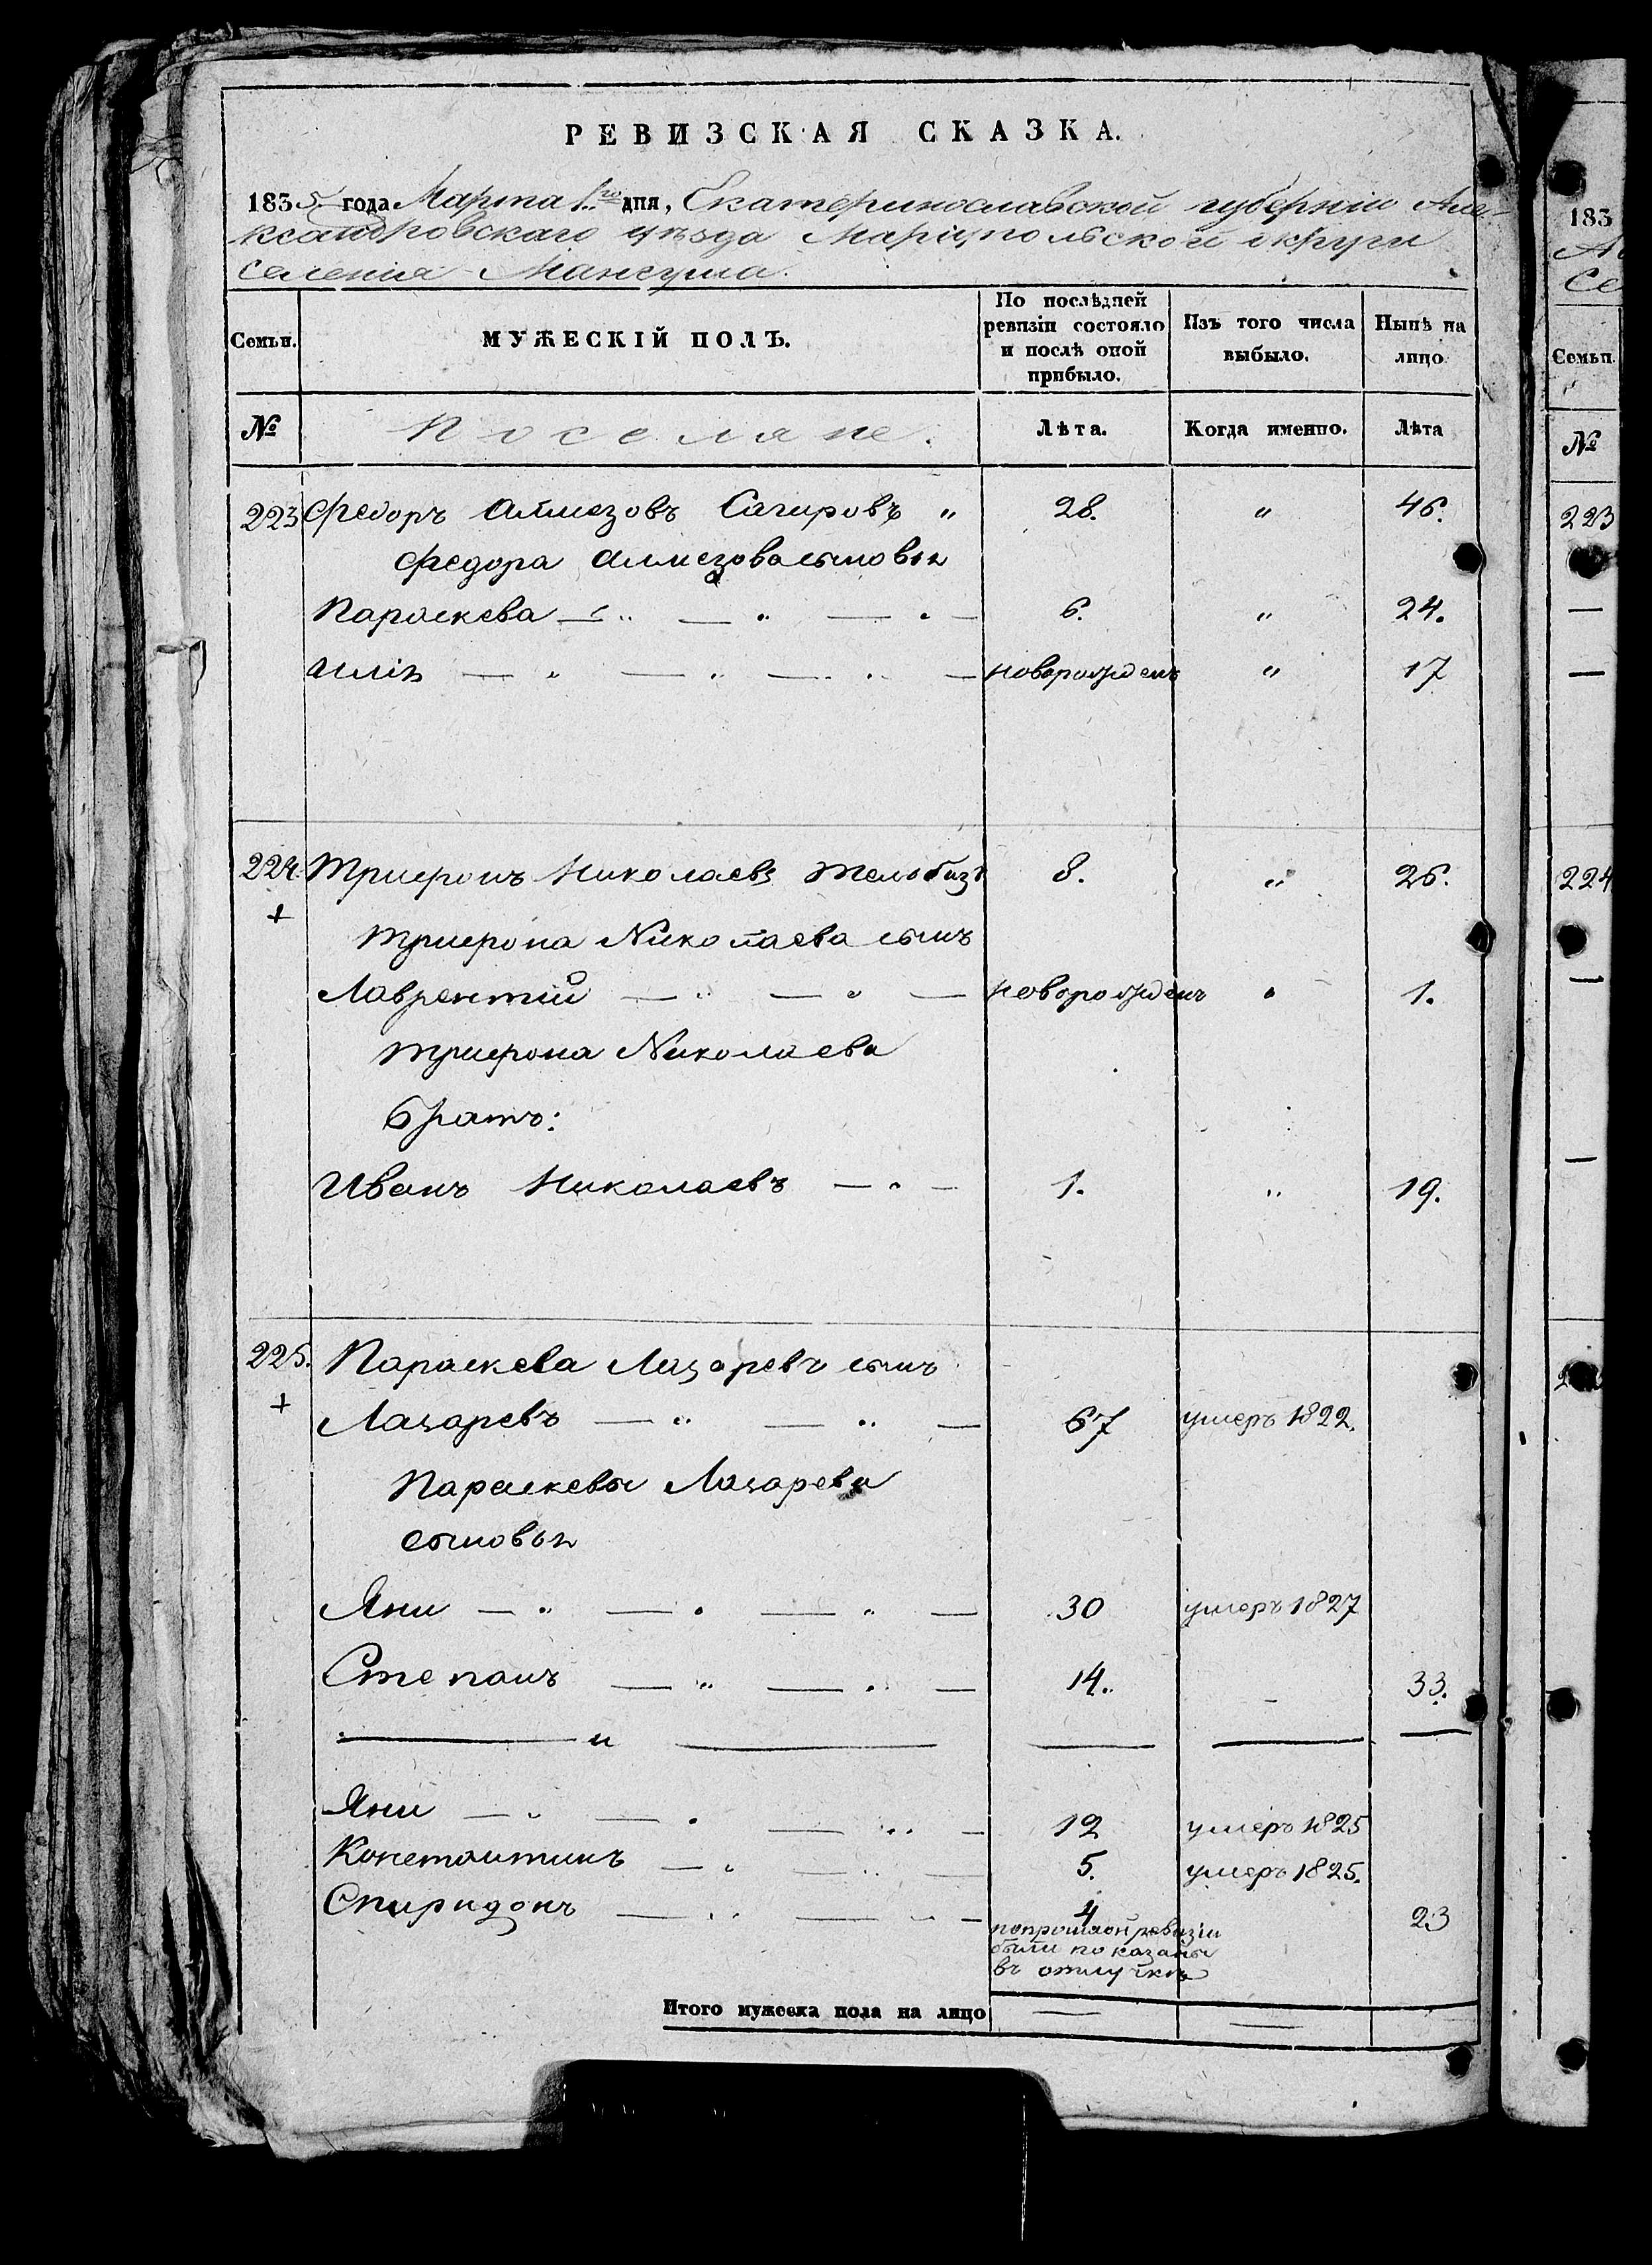 РЕВИЗСКАЯ СКАЗКА.
1835 года Марта 1го дня, Екатеринославской губерніи Але-
ксандровскаго уѣзда Маріупольской округи
селенія Мангуша.
Семьи. МУЖЕСКІЙ ПОЛЪ. По послѣдней ревизіи состояло и послѣ оной прибыло. Изъ того числа выбыло. Нынѣ на лицо
№ Поселяне. Лѣта. Когда именно. Лѣта
223 Федоръ Алмезовъ Сагировъ „ 28. „ 46.
Федора Алмезова сыновья
Параскева — „ — „ — „ — 6. „ 24.
Илія — „ — „ — „ — новорожденъ „ 17
224. Трифонъ Николаевъ 8. „ 26.
+
Трифона Николаева сынъ
Лаврентій — „ — „ — новорожденъ „ 1.
Трифона Николаева
братъ:
Иванъ Николаевъ — „ — 1. „ 19.
225. Параскева Лазаревъ сынъ
+ Лазаревъ — „ — „ — 67 умеръ 1822.
Параскевы Лазарева
сыновья
Яни — „ — „ — „ — 30 умеръ 1827
Степанъ — „ — „ — 14. - 33.
— и —
Яни — „ — „ — „ — 12 умеръ 1825
Константинъ — „ — „ — 5. умеръ 1825.
Спиридонъ — „ — „ — 4 23
по прошлой ревизіи
были показаны
въ отлучкѣ
Итого мужеска пола на лицо
183
Се
Семьи.
№
223
224